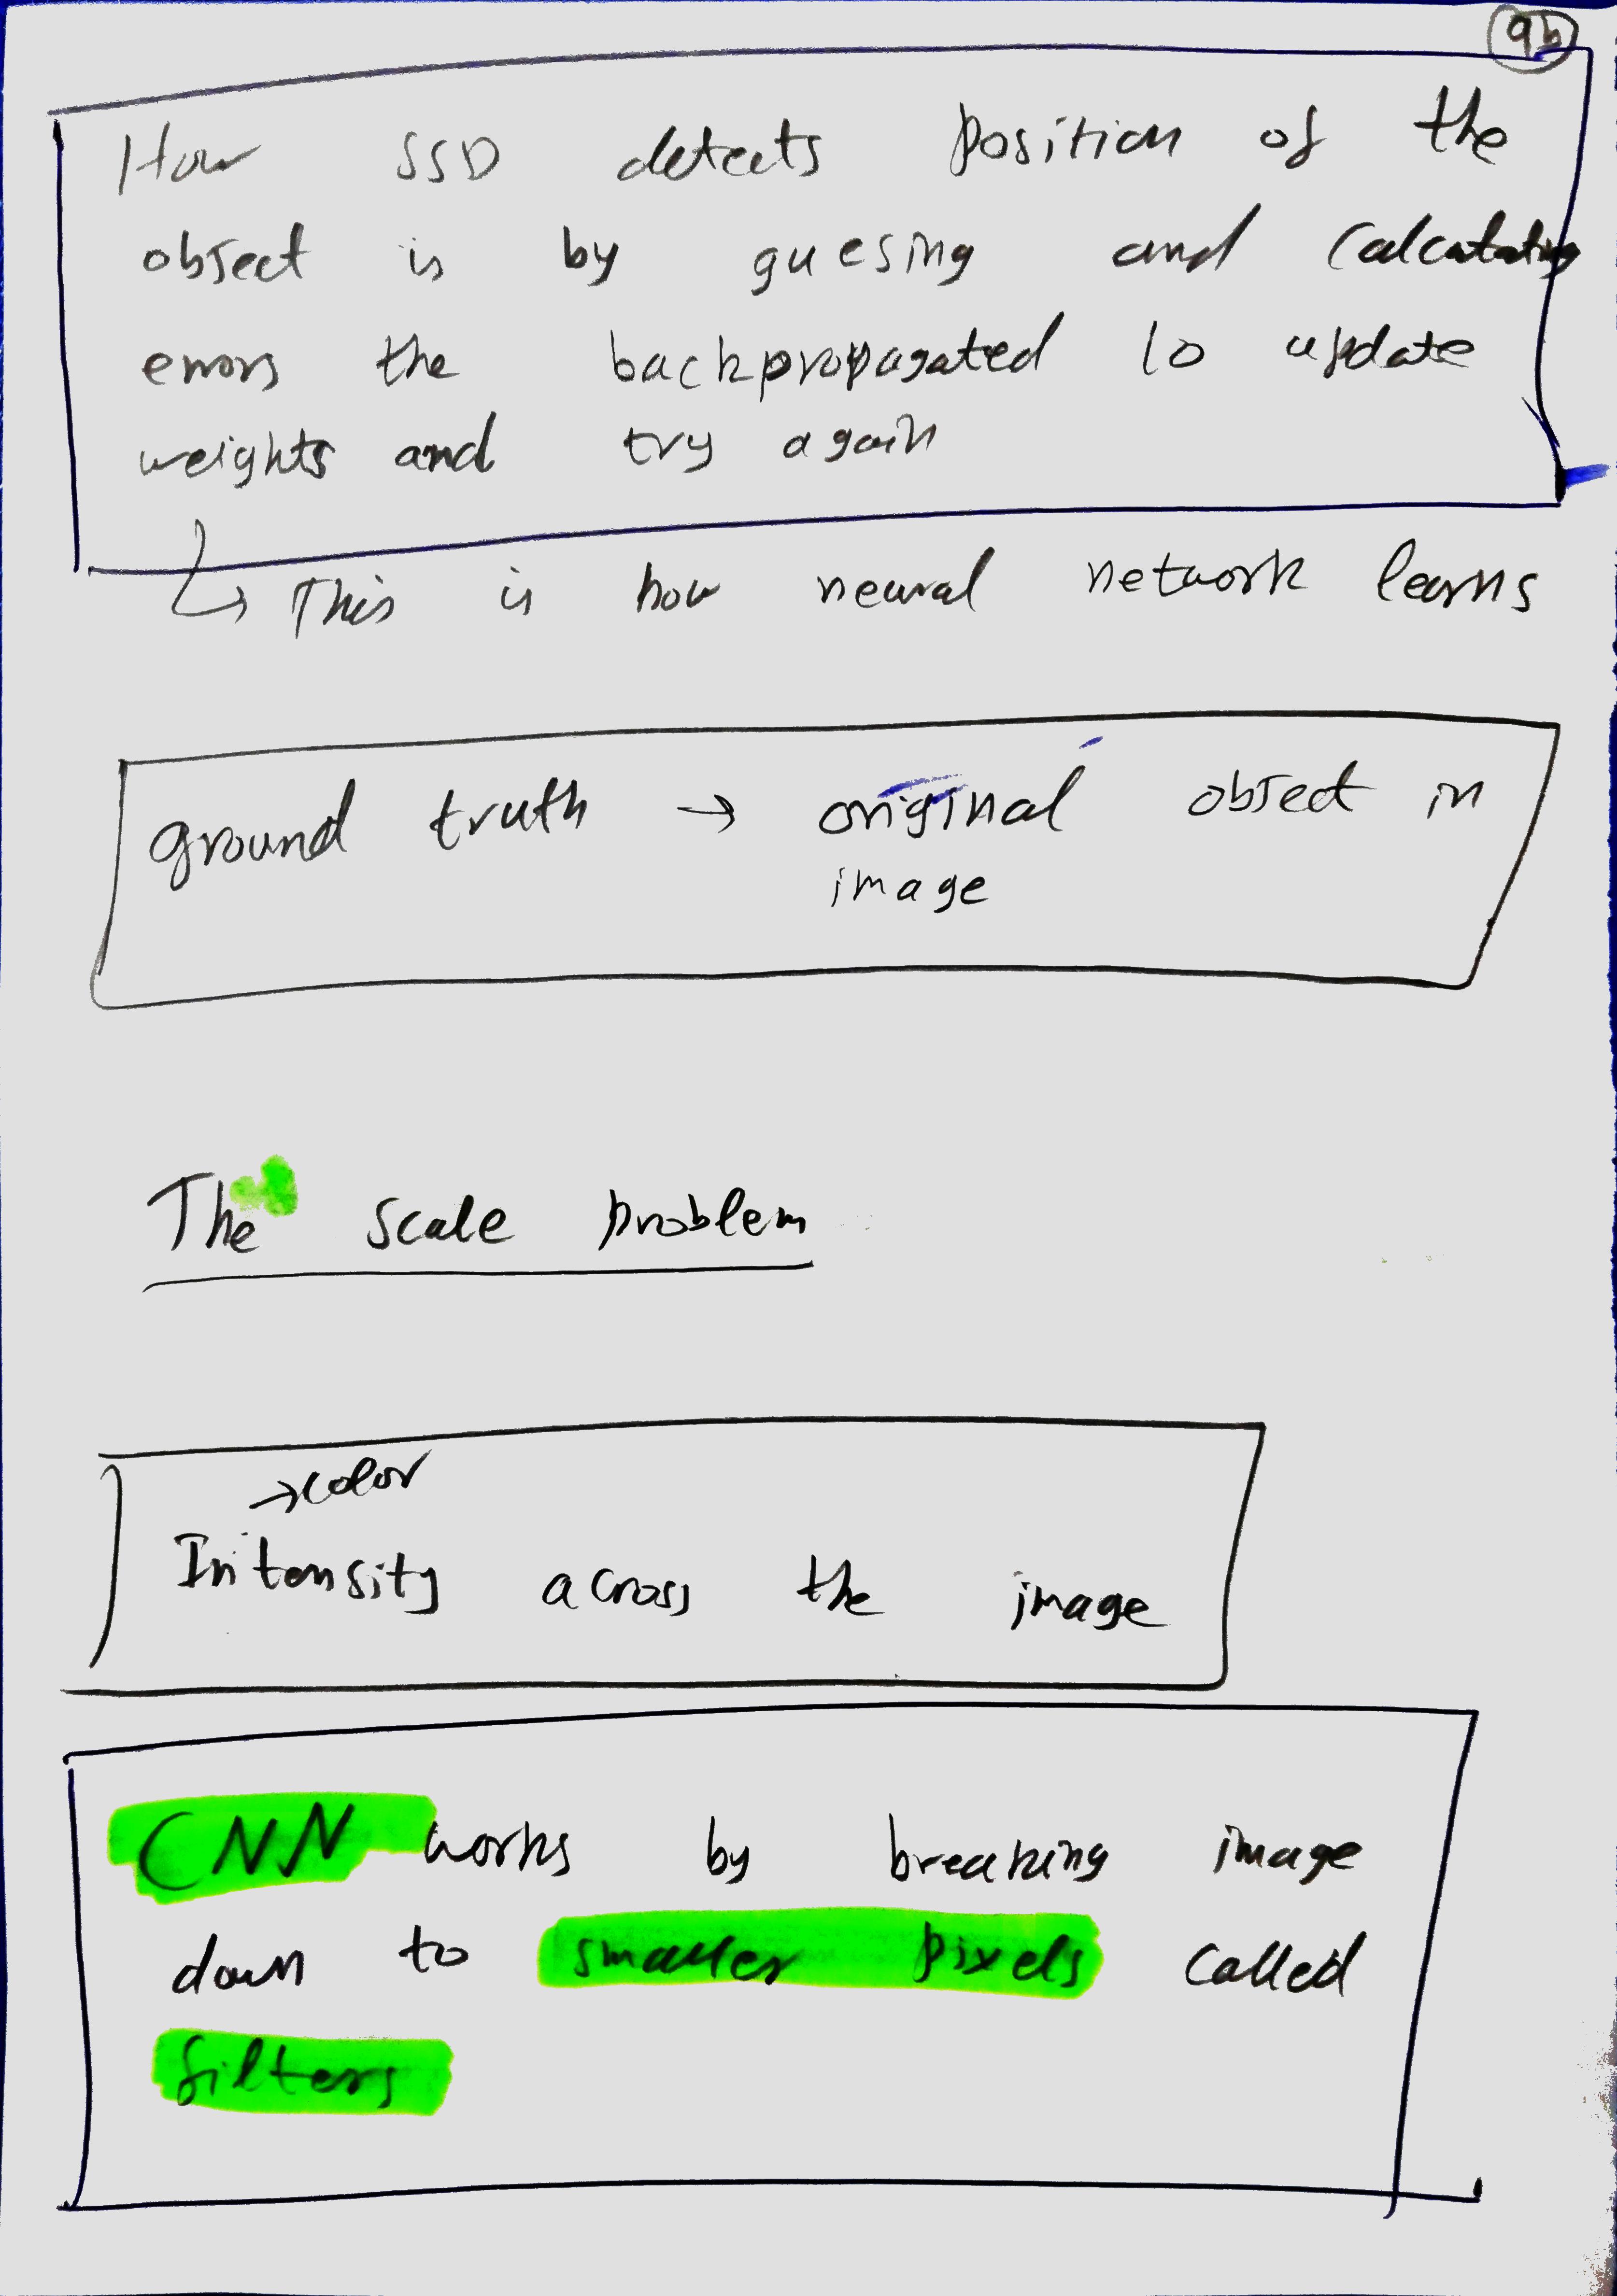 9b
How SSD detects position of the
object is by guesing and calculating
errors the backpropagated to update
weights and try again
↳ This is how neural network learns
ground truth → original object in
image
The scale problem
→ color
Intensity across the image
CNN works by breaking image
down to smaller pixels called
filters